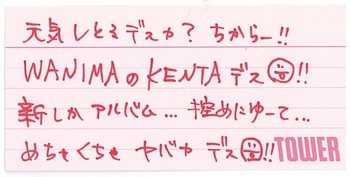 元気しとるデスカ? ちからー!!
WANIMAのKENTAデス!!
新しかアルバム... 控めにゆーて...
めちゃくちゃ ヤバカ デス!! TOWER